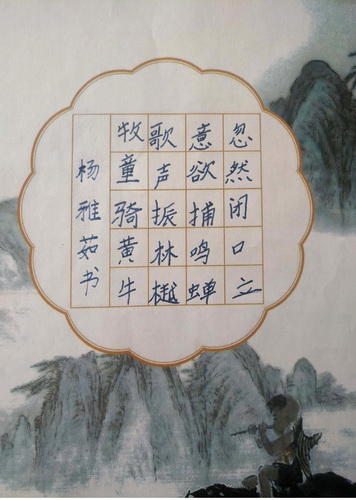 杨雅茹书
牧童骑黄牛
歌声振林樾
意欲捕鸣蝉
忽然闭口立